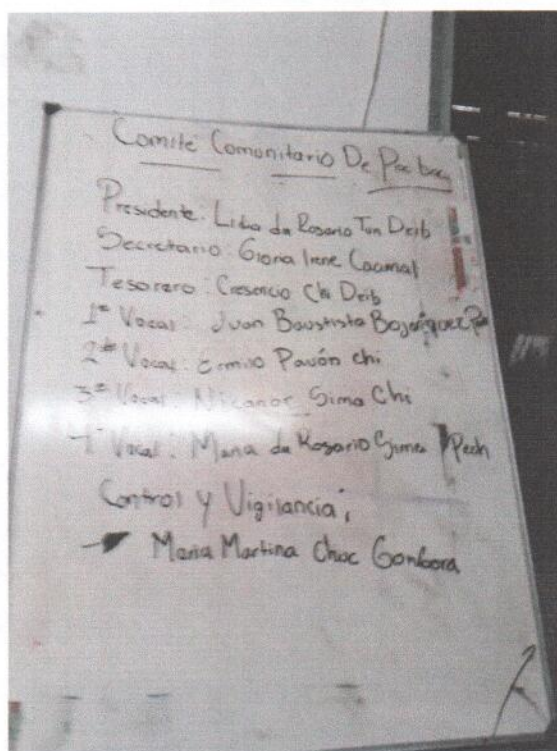 Comité Comonitario De Pacboc
Presidente: Lidia da Rosario Tun Dzib
Secretario: Gloria Irene Cocomal
Tesorero: Cresencio Chi Dzib
1er Vocal: Juan Baustista Bojorquez
2do Vocal: Ermilo Pavón Chi
3er Vocal: Nicanor Sima Chi
Vocal: Maria da Rosario Pech
Control y Vigilancia;
Maria Martina Choc Gonbora